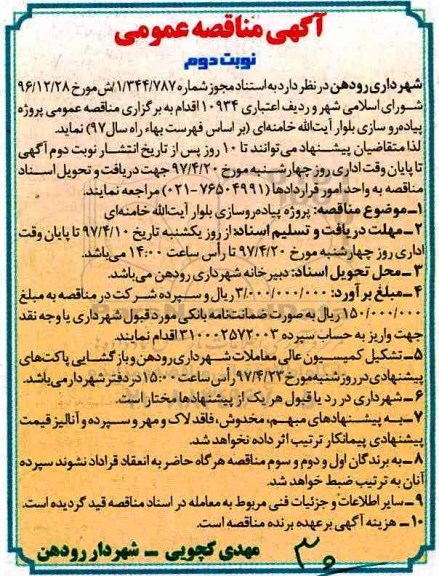 آگهی مناقصه عمومی
نوبت دوم
شهرداری رودهن در نظر دارد به استناد مجوز شماره ۱/۳۴۴/۷۸۷/ش مورخ ۹۶/۱۲/۲۸
شورای اسلامی شهر و ردیف اعتباری ۱۰۹۳۴ اقدام به برگزاری مناقصه عمومی پروژه
پیاده‌رو سازی بلوار آیت‌الله خامنه‌ای (بر اساس فهرست بهاء راه سال ۹۷) نماید.
لذا متقاضیان پیشنهاد می‌توانند تا ۱۰ روز پس از تاریخ انتشار نوبت دوم آگهی
تا پایان وقت اداری روز چهارشنبه مورخ ۹۷/۴/۲۰ جهت دریافت و تحویل اسناد
مناقصه به واحد امور قراردادها (۷۶۵۰۴۹۹۱-۰۲۱) مراجعه نمایند.
۱ـ موضوع مناقصه: پروژه پیاده‌روسازی بلوار آیت‌الله خامنه‌ای
۲ـ مهلت دریافت و تسلیم اسناد: از روز یکشنبه تاریخ ۹۷/۴/۱۰ تا پایان وقت
اداری روز چهارشنبه مورخ ۹۷/۴/۲۰ تا رأس ساعت ۱۴:۰۰ می‌باشد.
۳ ـ محل تحویل اسناد: دبیرخانه شهرداری رودهن می‌باشد.
۴ـ مبلغ برآورد: ۳/۰۰۰/۰۰۰/۰۰۰ ریال و سپرده شرکت در مناقصه به مبلغ
۱۵۰/۰۰۰/۰۰۰ ریال به صورت ضمانت‌نامه بانکی مورد قبول شهرداری یا وجه نقد
جهت واریز به حساب سپرده ۳۱۰۰۰۲۵۷۲۰۰۳ اقدام نمایند.
۵ـ تشکیل کمیسیون عالی معاملات شهرداری رودهن و بازگشایی پاکت‌های
پیشنهادی در روز شنبه مورخ ۹۷/۴/۲۳ رأس ساعت ۱۵:۰۰ در دفتر شهردار می‌باشد.
۶ـ شهرداری در رد یا قبول هر یک از پیشنهادها مختار است.
۷ـ به پیشنهادهای مبهم، مخدوش، فاقد لاک و مهر و سپرده و آنالیز قیمت
پیشنهادی پیمانکار ترتیب اثر داده نخواهد شد.
۸ ـ به برندگان اول و دوم و سوم مناقصه هرگاه حاضر به انعقاد قراداد نشوند سپرده
آنان به ترتیب ضبط خواهد شد.
۹ـ سایر اطلاعات و جزئیات فنی مربوط به معامله در اسناد مناقصه قید گردیده است.
۱۰ـ هزینه آگهی برعهده برنده مناقصه است.
مهدی کچویی ـ شهردار رودهن